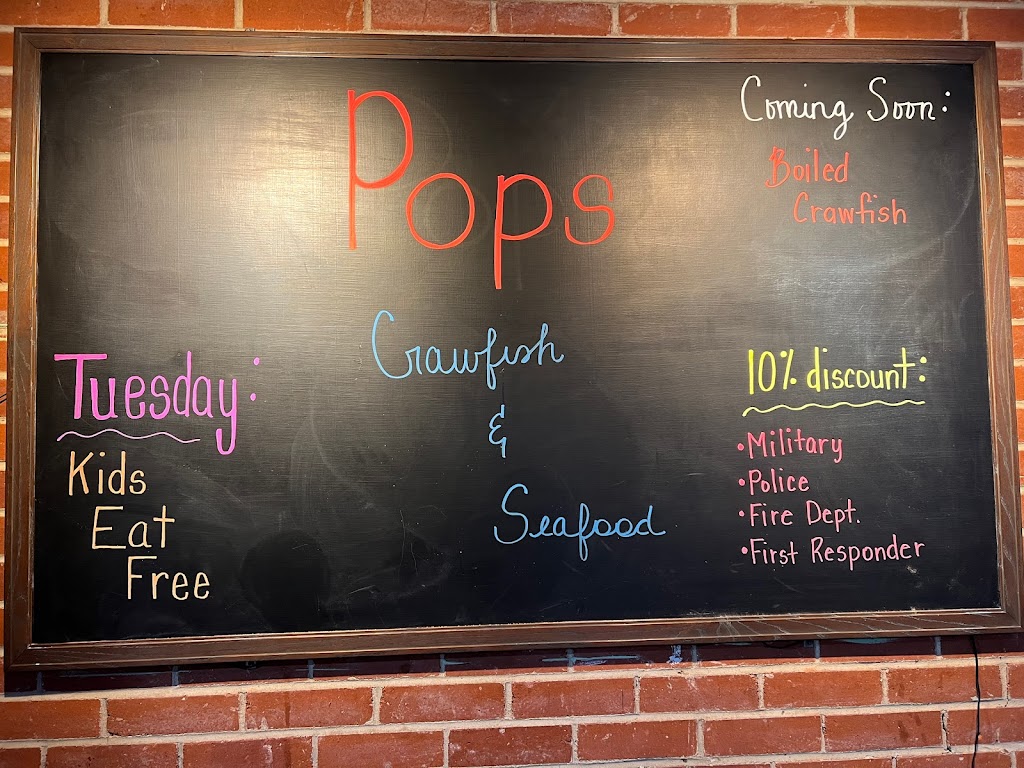 Pops
Crawfish
&
Seafood
Tuesday:
Kids
Eat
Free
Coming Soon:
Boiled
Crawfish
10% discount:
•Military
•Police
•Fire Dept.
•First Responder